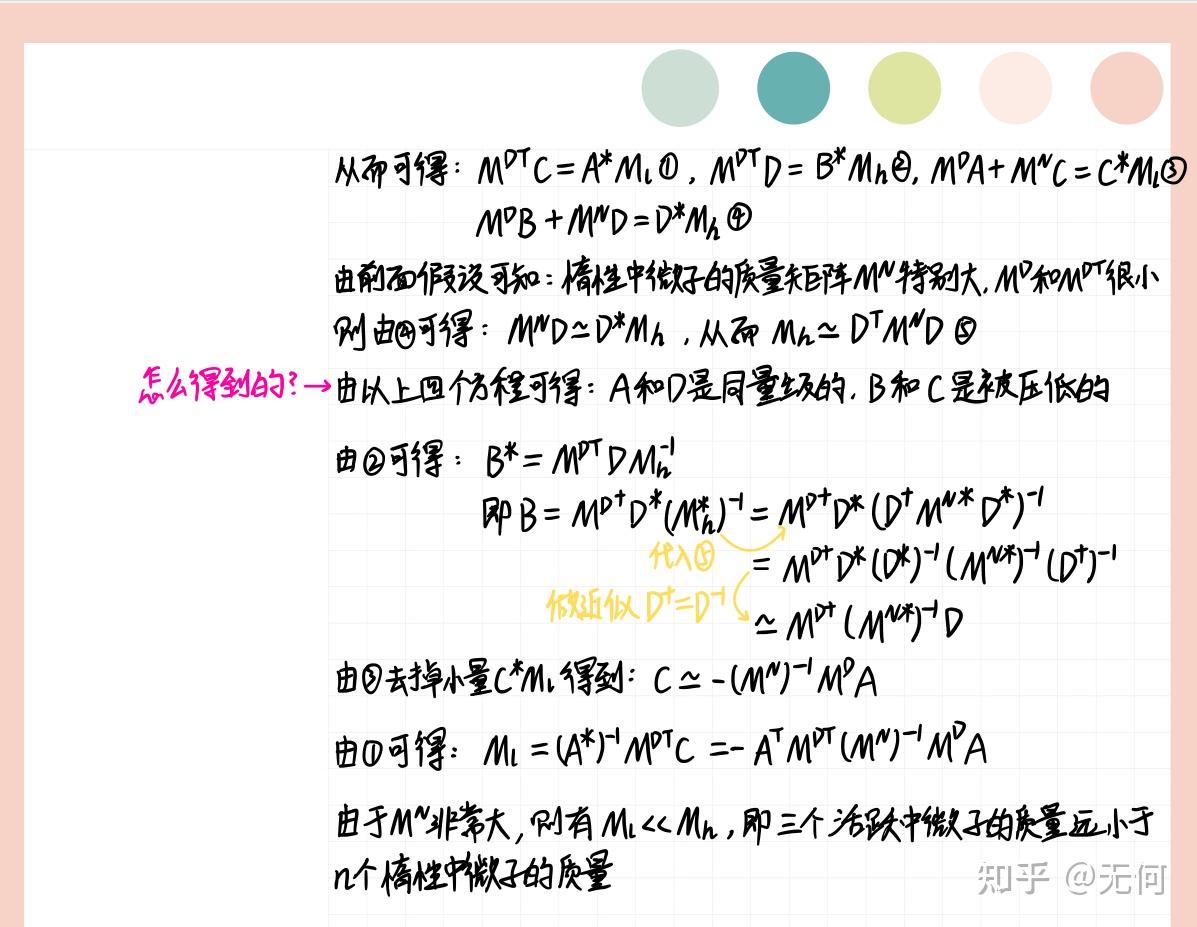 从而可得：M^{DT}C = A*M_l ①，M^{DT}D = B*M_h ②，M^DA + M^NC = C*M_l ③
M^DB + M^ND = D*M_h ④
由前面假设可知：惰性中微子的质量矩阵M^N特别大，M^D和M^{DT}很小
则由④可得：M^ND ≃ D*M_h，从而 M_h ≃ D^TM^ND ⑤
怎么得到的？→由以上四个方程可得：A和D是同量级的，B和C是被压低的
由②可得：B* = M^{DT}DM_h^{-1}
即B = M^{D†}D*(M_h^*)^{-1} = M^{D†}D*(D†M^{N*}D*)^{-1}
代入⑤ = M^{D†}D*(D*)^{-1}(M^{N*})^{-1}(D†)^{-1}
做近似 D†=D^{-1} ≃ M^{D†}(M^{N*})^{-1}D
由③去掉小量C*M_l得到：C ≃ -(M^N)^{-1}M^DA
由①可得：M_l = (A*)^{-1}M^{DT}C = -A^TM^{DT}(M^N)^{-1}M^DA
由于M^N非常大，则有M_l<<M_h，即三个活跃中微子的质量远小于
n个惰性中微子的质量
知乎 @无何